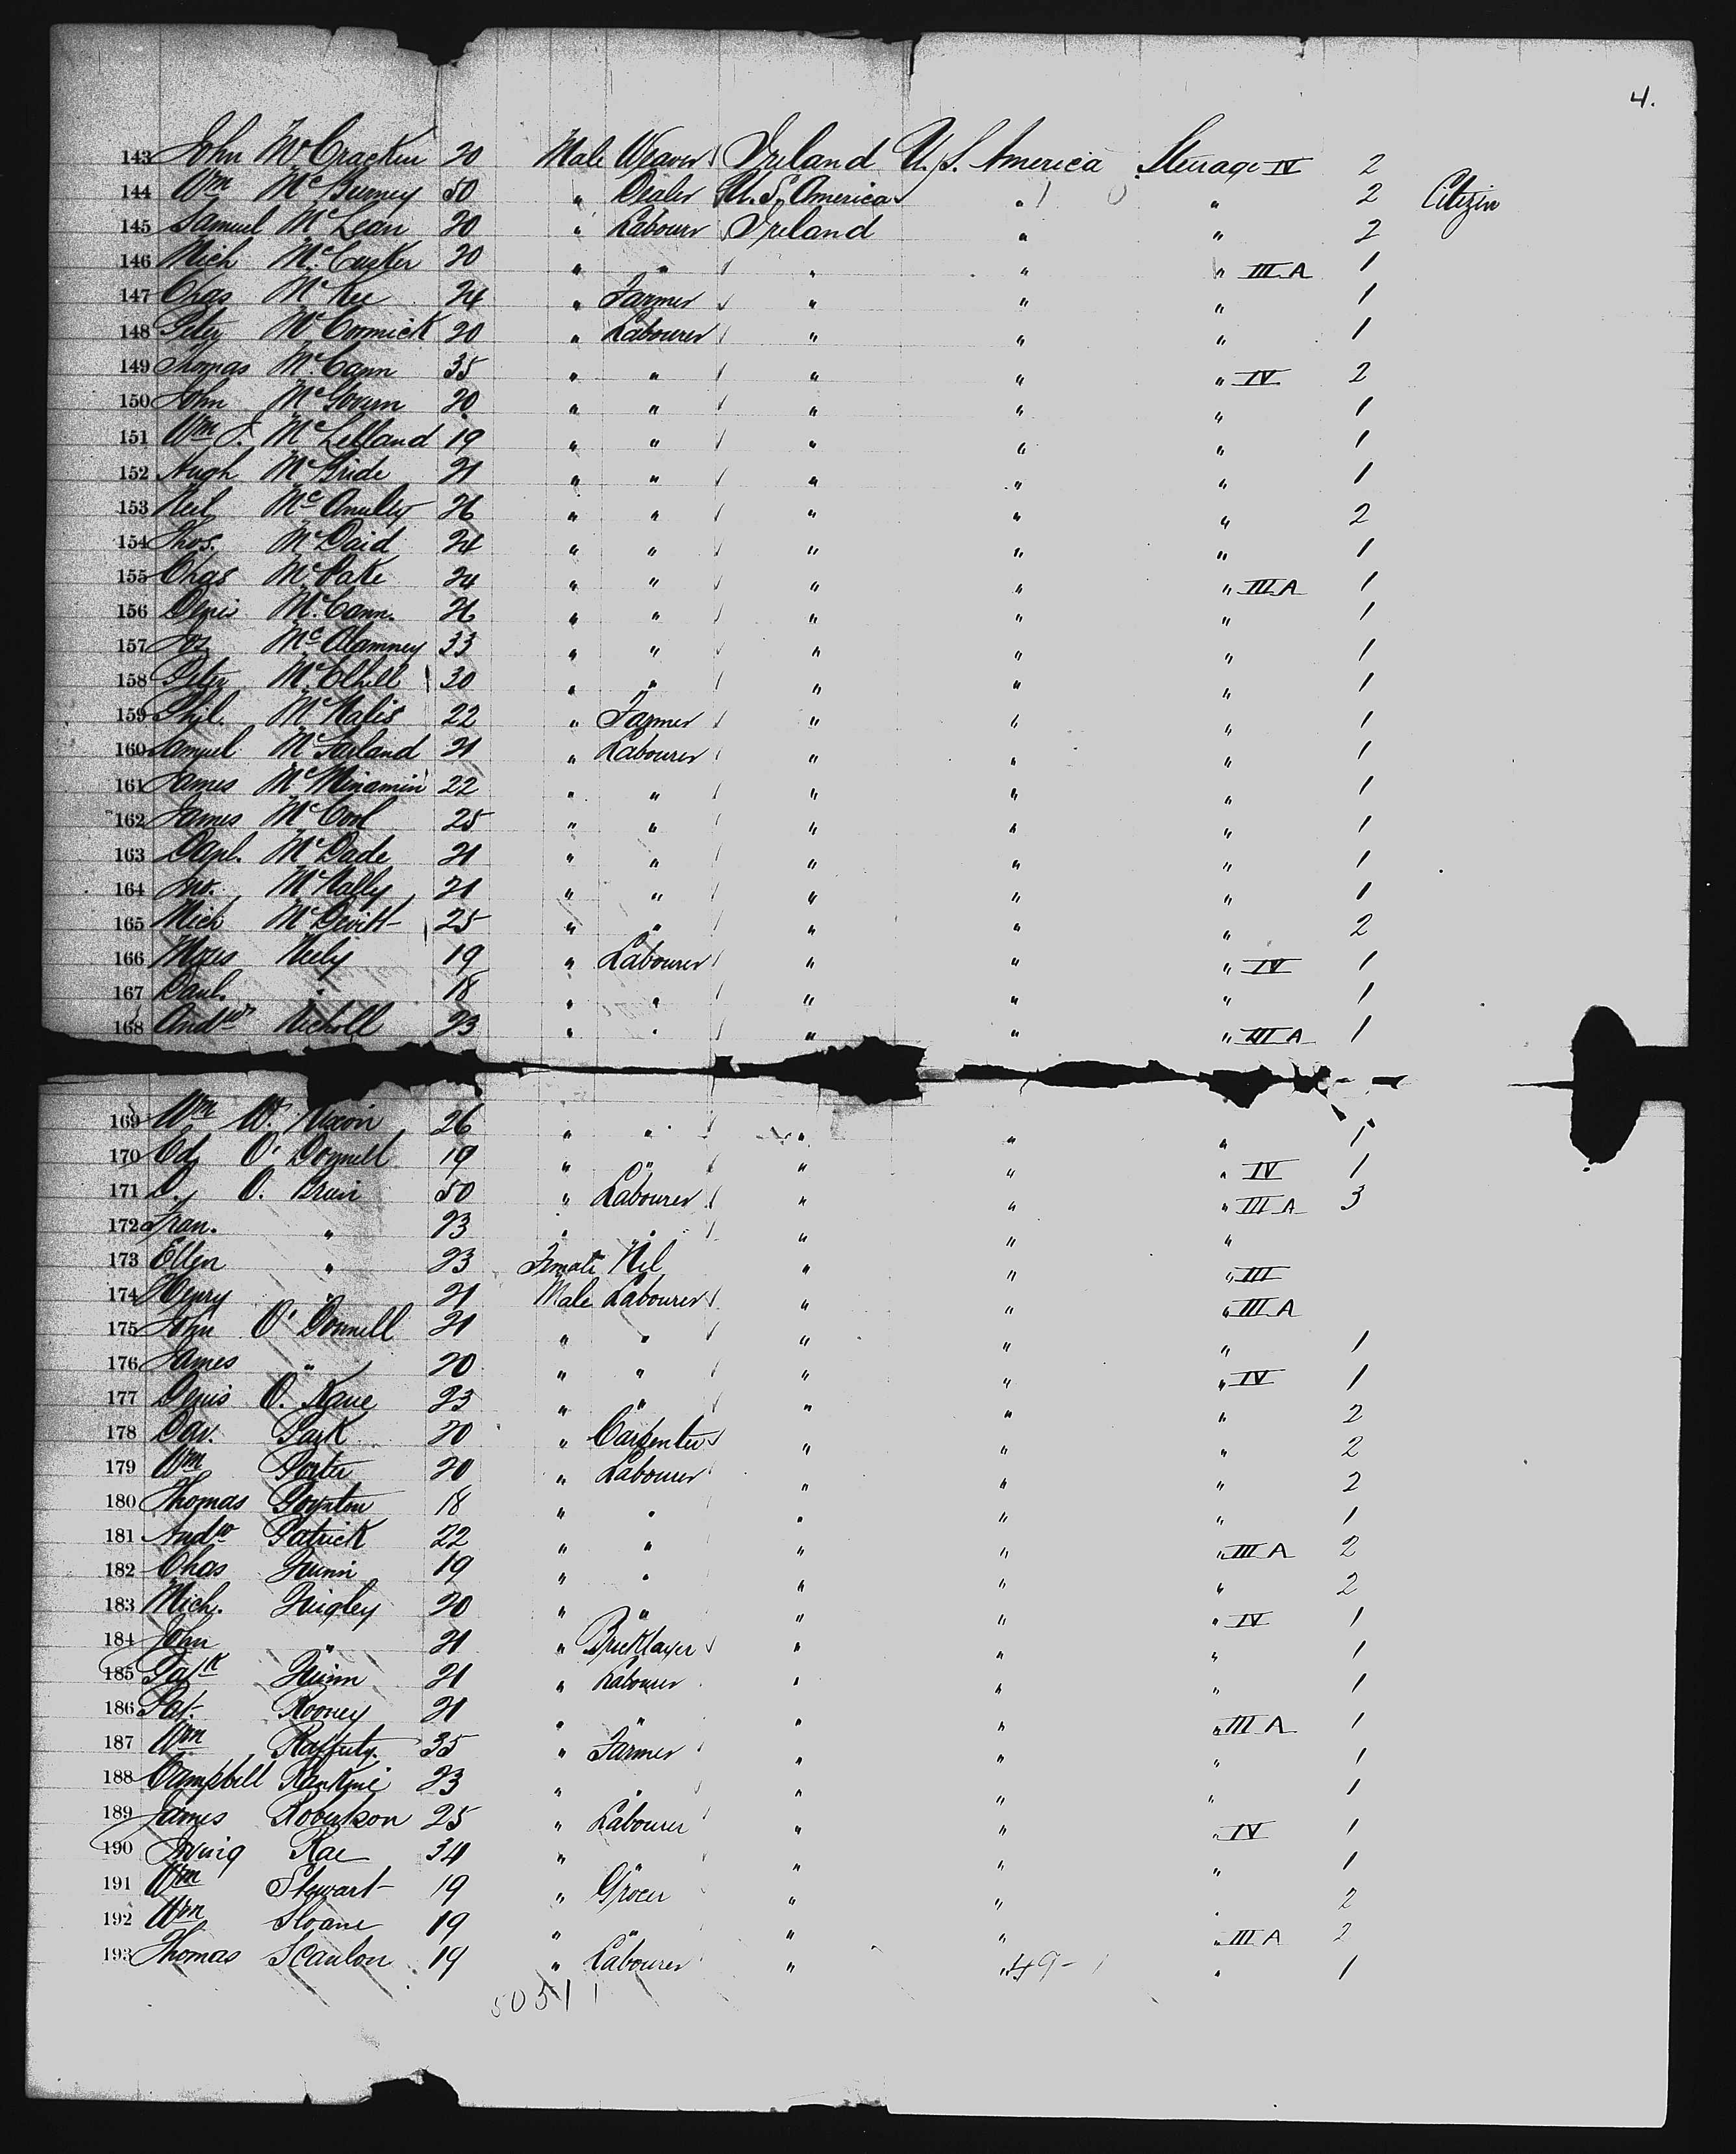 4.
143 John McCracken 20 Male Weaver Ireland U.S. America Steerage IV 2
144 Wm McBurney 50 " Dealer U.S. America " " 2 Citizen
145 Samuel McLean 20 " Labourer Ireland " " 2
146 Mich McCusker 20 " " " " " III A 1
147 Chas McKee 24 " Farmer " " " 1
148 Peter McCormick 20 " Labourer " " " 1
149 Thomas McCann 35 " " " " " IV 2
150 John McGovern 20 " " " " " 1
151 Wm J. McLelland 19 " " " " " 1
152 Hugh McBride 21 " " " " " 1
153 Neil McAnulty 26 " " " " " 2
154 Thos. McDaid 24 " " " " " 1
155 Chas McPake 24 " " " " " III A 1
156 Denis McCann. 26 " " " " " 1
157 Jos. McAlamney 33 " " " " " 1
158 Peter McElhill 30 " " " " " 1
159 Phil. McNalis 22 " Farmer " " " 1
160 Samuel McFarland 21 " Labourer " " " 1
161 James McMinamin 22 " " " " " 1
162 James McCool 25 " " " " " 1
163 Danl. McDade 21 " " " " " 1
164 Jno. McNally 21 " " " " " 1
165 Mich McDevitt 25 " " " " " 2
166 Moses Neely 19 " Labourer " " " IV 1
167 Danl. " 18 " " " " " 1
168 Andw Nicholl 23 " " " " " III A 1
169 Wm W. Nixon 26 " " " " " 1
170 Ed. O'Donnell 19 " " " " " IV 1
171 O. Brien 50 " Labourer " " " III A 3
172 Fran. " 23 " " " " "
173 Ellen " 23 Female Nil " " " III
174 Henry " 21 Male Labourer " " " III A
175 John O'Donnell 21 " " " " " 1
176 James " 20 " " " " " IV 1
177 Denis O. Kane 23 " " " " " 2
178 Dav. Park 20 " Carpenter " " " 2
179 Wm Porter 20 " Labourer " " " 2
180 Thomas Poynton 18 " " " " " 1
181 Andw Patrick 22 " " " " " III A 2
182 Chas Quinn 19 " " " " " 2
183 Mich. Quigley 20 " " " " " IV 1
184 John " 21 " Bricklayer " " " 1
185 Patk Quinn 21 " Labourer " " " 1
186 Pat. Rooney 21 " " " " " III A 1
187 Wm Rafferty 35 " Farmer " " " 1
188 Campbell Rankine 23 " " " " " 1
189 James Robertson 25 " Labourer " " " IV 1
190 Irving Rae 34 " " " " " 1
191 Wm Stewart 19 " Grocer " " " 2
192 Wm Sloane 19 " " " " " III A 2
193 Thomas Scanlon 19 " Labourer " " 49-1 " 1
50511